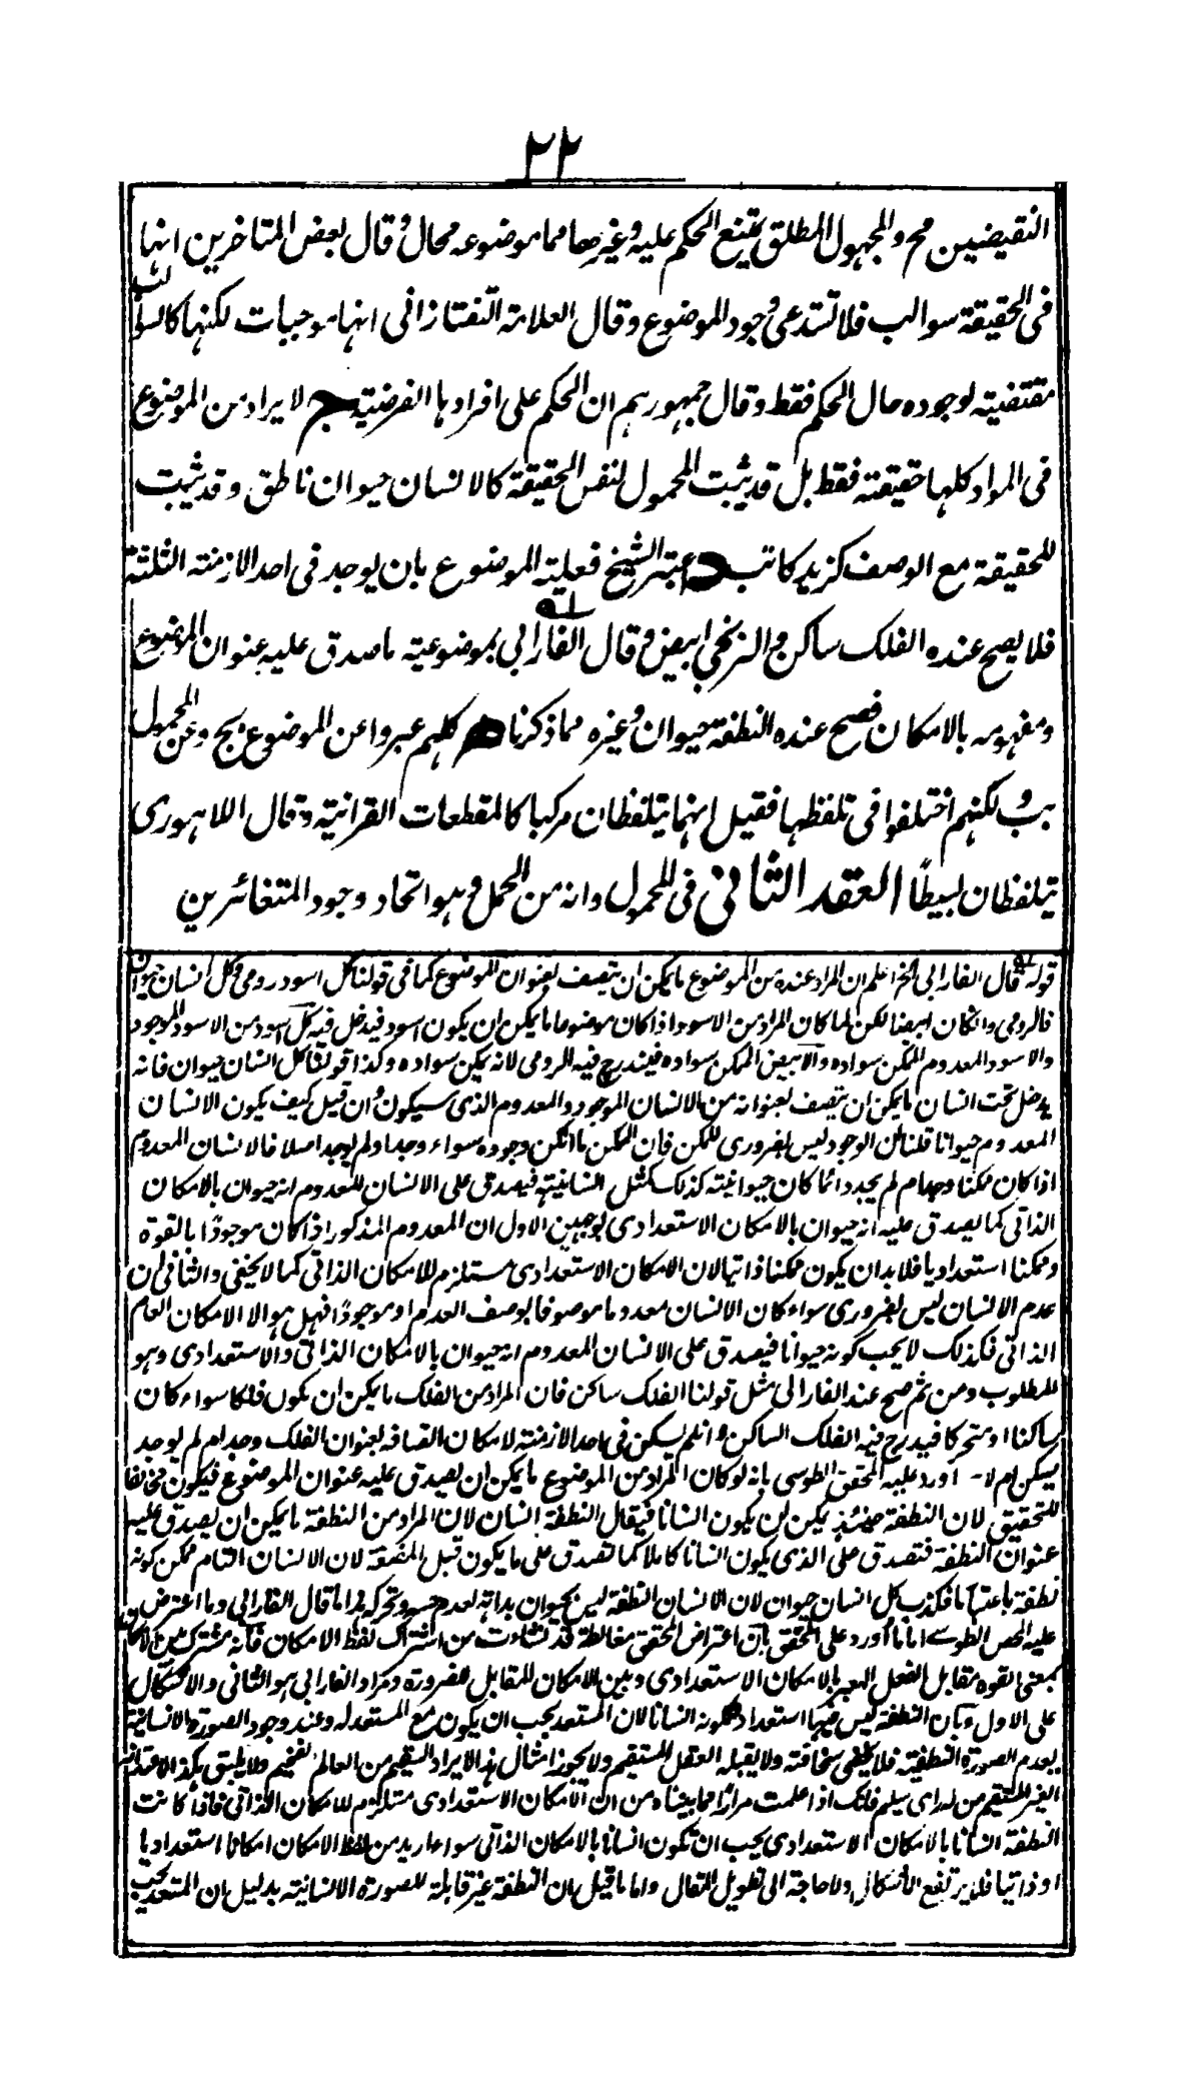 ٢٢
النقیضین مح والمجهول المطلق یمتنع الحکم علیه وغیرها مما موضوعه محال وقال بعض المتاخرین انها
فی الحقیقة سوالب فلا تستدعی وجود الموضوع وقال العلامة التفتازانی انها موجبات لکنها کالسوالب
مقتضیة لوجوده حال الحکم فقط وقال جمهورهم ان الحکم علی افرادها الفرضیة ج لا یراد من الموضوع
فی المواد کلها حقیقته فقط بل قد یثبت المحمول لنفس الحقیقة کالانسان حیوان ناطق وقد یثبت
للحقیقة مع الوصف کزید کاتب د اعتبر الشیخ فعلیة الموضوع بان یوجد فی احد الازمنة الثلثة
فلا یصح عنده الفلک ساکن والزنجی ابیض وقال الفارابی بموضوعیة ما صدق علیه عنوان الموضوع
ومفهومه بالامکان فصح عنده النطفة حیوان وغیره مما ذکرنا ه کلهم عبروا عن الموضوع بج وعن المحمول
بب ولکنهم اختلفوا فی تلفظها فقیل انهما یتلفظان مرکبا کالمقطعات القرانیة وقال اللاهوری
یتلفظان بسیطًا العقد الثانی فی المحمول وانه من الحمل وهو اتحاد وجود المتغائرین
قوله قال الفارابی الخ اعلم ان المراد عنده من الموضوع ما یمکن ان یتصف بعنوان الموضوع کما فی قولنا کل اسود رومی وکل انسان حیوان
فالرومی وان کان ابیضا لکن لما کان المراد من الاسود اذا کان موضوعا ما یمکن ان یکون اسود فیدخل فیه کل اسود من الاسود الموجود
والاسود المعدوم الممکن سواده والابیض الممکن سواده فیندرج فیه الرومی لانه یمکن سواده وکذا قولنا کل انسان حیوان فانه
یدخل تحت انسان ما یمکن ان یتصف بعنوانه من الانسان الموجود والمعدوم الذی سیکون وان قیل کیف یکون الانسان
المعدوم حیوانا قلنا ان الوجود لیس بضروری للممکن فان الممکن ما امکن وجوده سواء وجد او لم یوجد اصلا فالانسان المعدوم
اذا کان ممکنا وجد ام لم یجد دائما کان حیوانیته کذلک کمثل انسانیته فیصدق علی الانسان المعدوم انه حیوان بالامکان
الذاتی کما یصدق علیه انه حیوان بالامکان الاستعدادی لوجهین الاول ان المعدوم المذکور اذا کان موجودًا بالقوة
وممکنا استعدادیا فلا بد ان یکون ممکنا ذاتیا لان الامکان الاستعدادی مستلزم للامکان الذاتی کما لا یخفی والثانی ان
عدم الانسان لیس بضروری سواء کان الانسان معدوما موصوفا بوصف العدم او موجودًا فهل هو الا الامکان العام
الذاتی فکذلک لا یجب کونه حیوانا فیصدق علی الانسان المعدوم انه حیوان بالامکان الذاتی والاستعدادی وهو
المطلوب ومن ثم صح عند الفارابی مثل قولنا الفلک ساکن فان المراد من الفلک ما یمکن ان یکون فلکا سواء کان
ساکنا او متحرکا فیدرج فیه الفلک الساکن وان لم یسکن فی احد الازمنة لامکان اتصافه بعنوان الفلک وجد ام لم یوجد
یسکن ام لا - اورد علیه المحقق الطوسی بانه لو کان المراد من الموضوع ما یمکن ان یصدق علیه عنوان الموضوع فیکون مخالفا
للتحقیق لان النطفة حینئذ یمکن ان یکون انسانا فیقال النطفة انسان لان المراد من النطفة ما یمکن ان یصدق علیه
عنوان النطفة فتصدق علی الذی یکون انسانا کاملا کما تصدق علی ما یکون قبل المضغة لان الانسان التام ممکن کونه
نطفة باعتبار ما فکذب کل انسان حیوان لان الانسان النطفة لیس بحیوان بداهة لعدم حسه وتحرکه هذا ما قال الفارابی وما اعترض
علیه المحقق الطوسی اما ما اورد علی المحقق بان اعتراض المحقق مغالطة قد نشاءت من اشتراک لفظ الامکان فانه مشترک بین الامکان
بمعنی القوة مقابل الفعل المعبر بالامکان الاستعدادی وبین الامکان المقابل للضرورة ومراد الفارابی هو الثانی والاشکال
علی الاول وبان النطفة لیس فیها استعداد لکونه انسانا لان المستعد یجب ان یکون مع المستعد له وعند وجود الصورة الانسانیة
یعدم الصورة النطفیة فلا یخفی سخافته ولا یقبله العقل المستقیم ولا یجوز امثال هذا الایراد السقیم من العالم الفخیم ولا یلیق
الغیر المستقیم من له رای سلیم فانک اذا علمت مرارًا مما بیناه من ان الامکان الاستعدادی مستلزم للامکان الذاتی فاذا کانت
النطفة انسانا بالامکان الاستعدادی یجب ان تکون انسانا بالامکان الذاتی سواء ارید من لفظ الامکان امکانا استعدادیا
او ذاتیا فلا یرتفع الاشکال ولا حاجة الی تطویل المقال واما ما قیل ان النطفة غیر قابلة للصورة الانسانیة بدلیل ان المستعد یجب